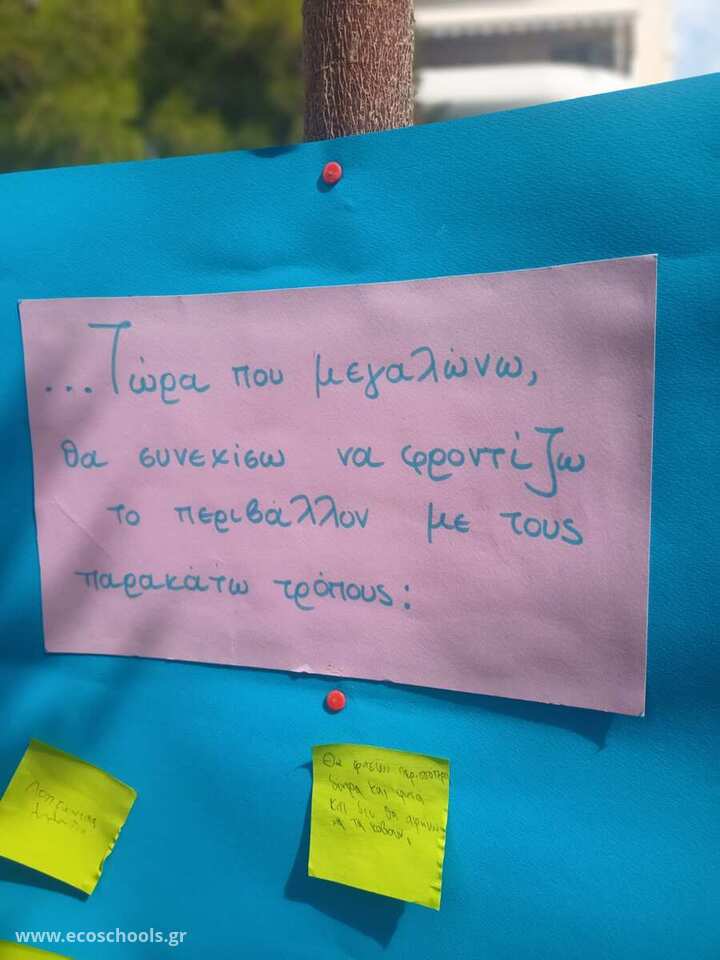 ...Τώρα που μεγαλώνω,
θα συνεχίσω να φροντίζω
το περιβάλλον με τους
παρακάτω τρόπους:
Θα περισσότερα
δέντρα και φυτά
και δεν θα αφήνω
να τα κόβουν.
www.ecoschools.gr